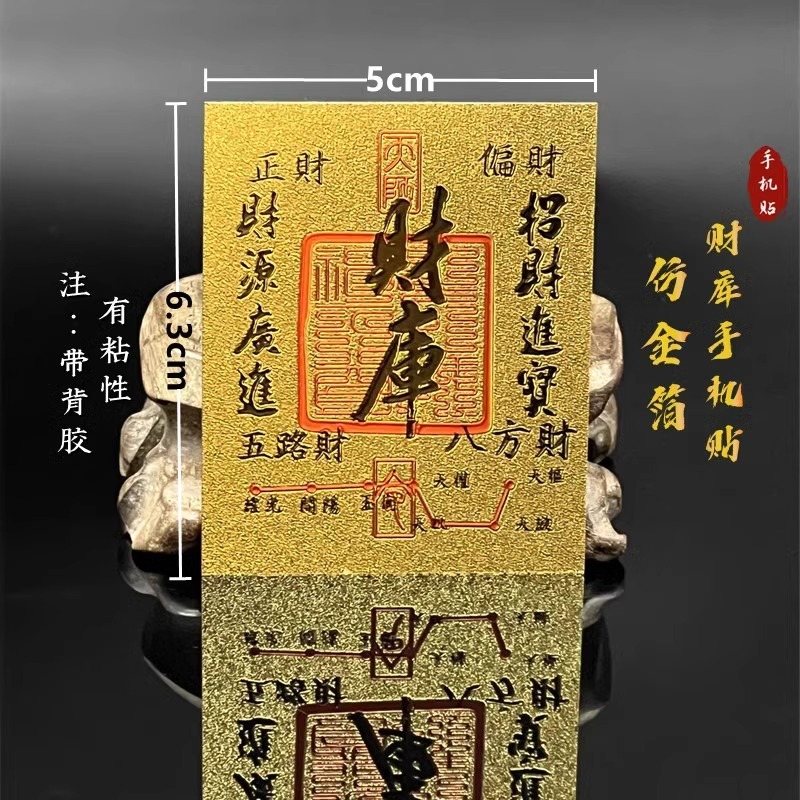 5cm
6.3cm
正財
偏財
財源廣進
財庫
招財進寶
五路財
八方財
天權
天樞
開陽
手机贴
财库手机贴
仿金箔
注：带背胶
有粘性